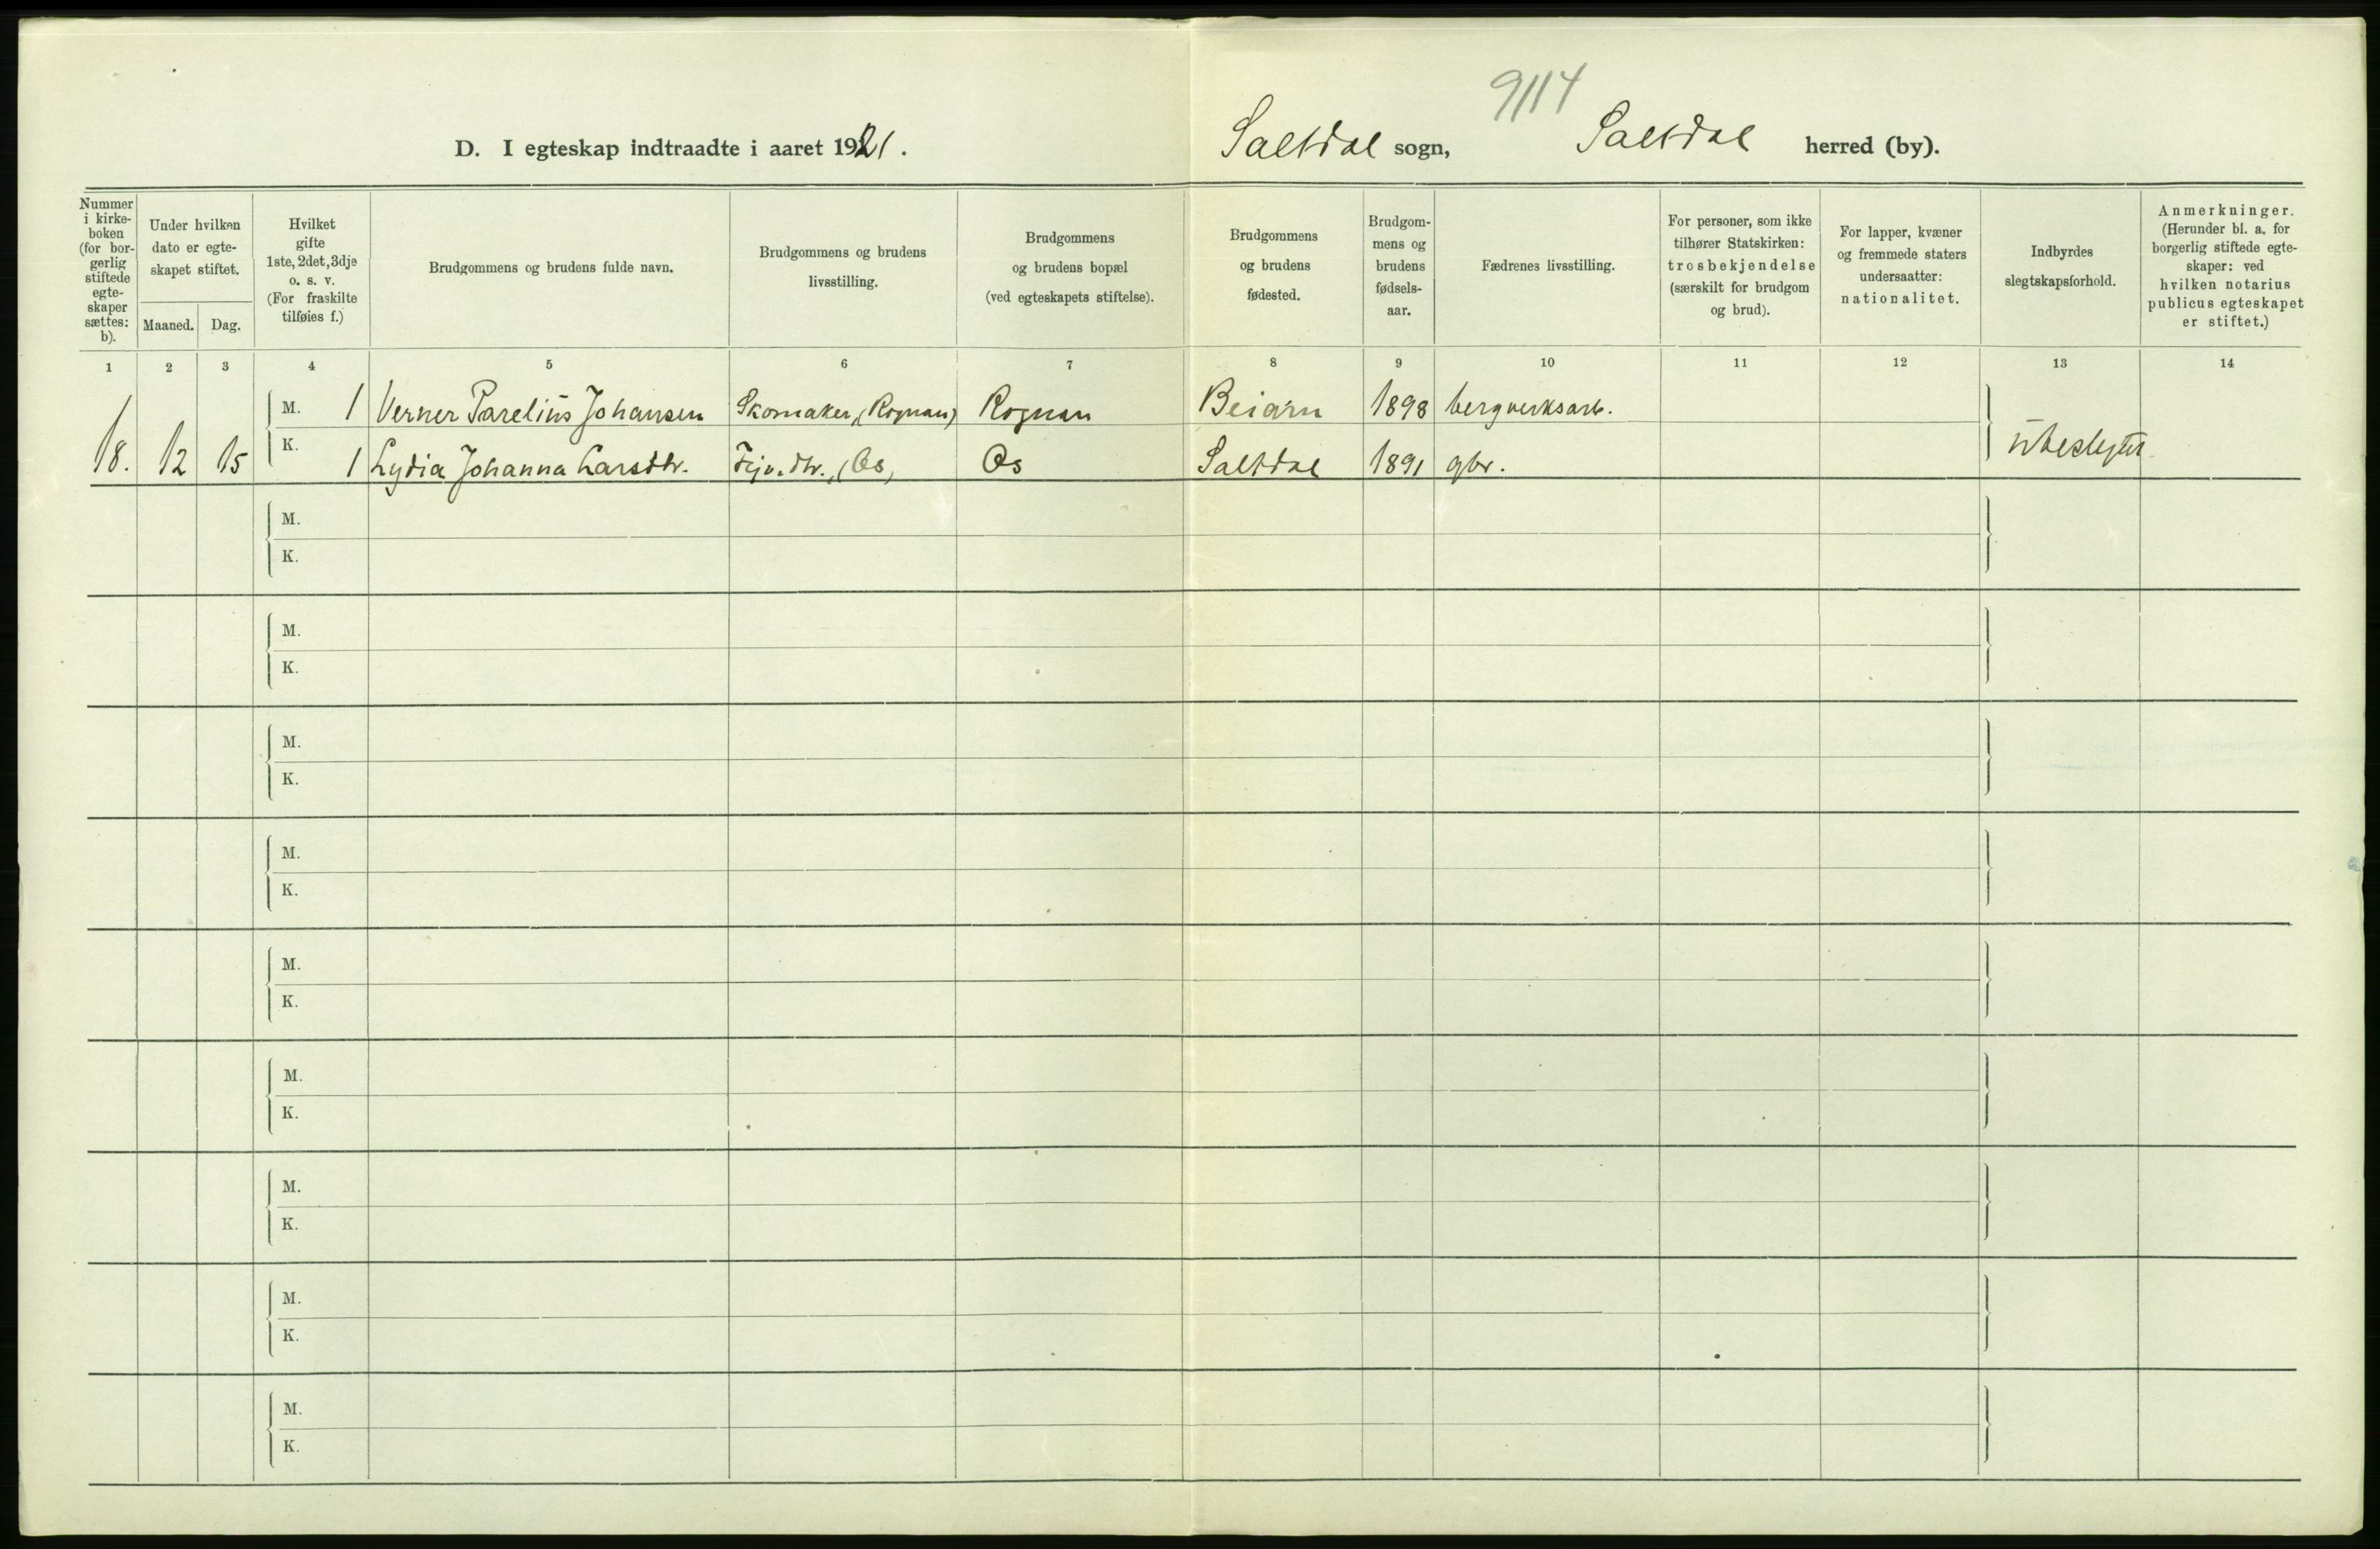 9114
D. I egteskap indtraadte i aaret 1921. Saltdal sogn, Saltdal herred (by).
Nummer i kirke-boken (for bor-gerlig stiftede egte-skaper sættes: b).
Under hvilken dato er egte-skapet stiftet.
Maaned. Dag.
Hvilket gifte 1ste, 2det, 3dje o. s. v. (For fraskilte tilføies f.)
Brudgommens og brudens fulde navn.
Brudgommens og brudens livsstilling.
Brudgommens og brudens bopæl (ved egteskapets stiftelse).
Brudgommens og brudens fødested.
Brudgom-mens og brudens fødsels-aar.
Fædrenes livsstilling.
For personer, som ikke tilhører Statskirken: trosbekjendelse (særskilt for brudgom og brud).
For lapper, kvæner og fremmede staters undersaatter: nationalitet.
Indbyrdes slegtskapsforhold.
Anmerkninger. (Herunder bl. a. for borgerlig stiftede egte-skaper: ved hvilken notarius publicus egteskapet er stiftet.)
1 2 3 4 5 6 7 8 9 10 11 12 13 14
M. 1 Verner Parelius Johansen Skomaker, (Rognan) Rognan Beiarn 1898 bergverksarb.
18. 12 15 K. 1 Lydia Johanna Larsdtr. (Os) Os Saltdal 1891 gbr. ubeslegtet
M.
K.
M.
K.
M.
K.
M.
K.
M.
K.
M.
K.
M.
K.
M.
K.
M.
K.